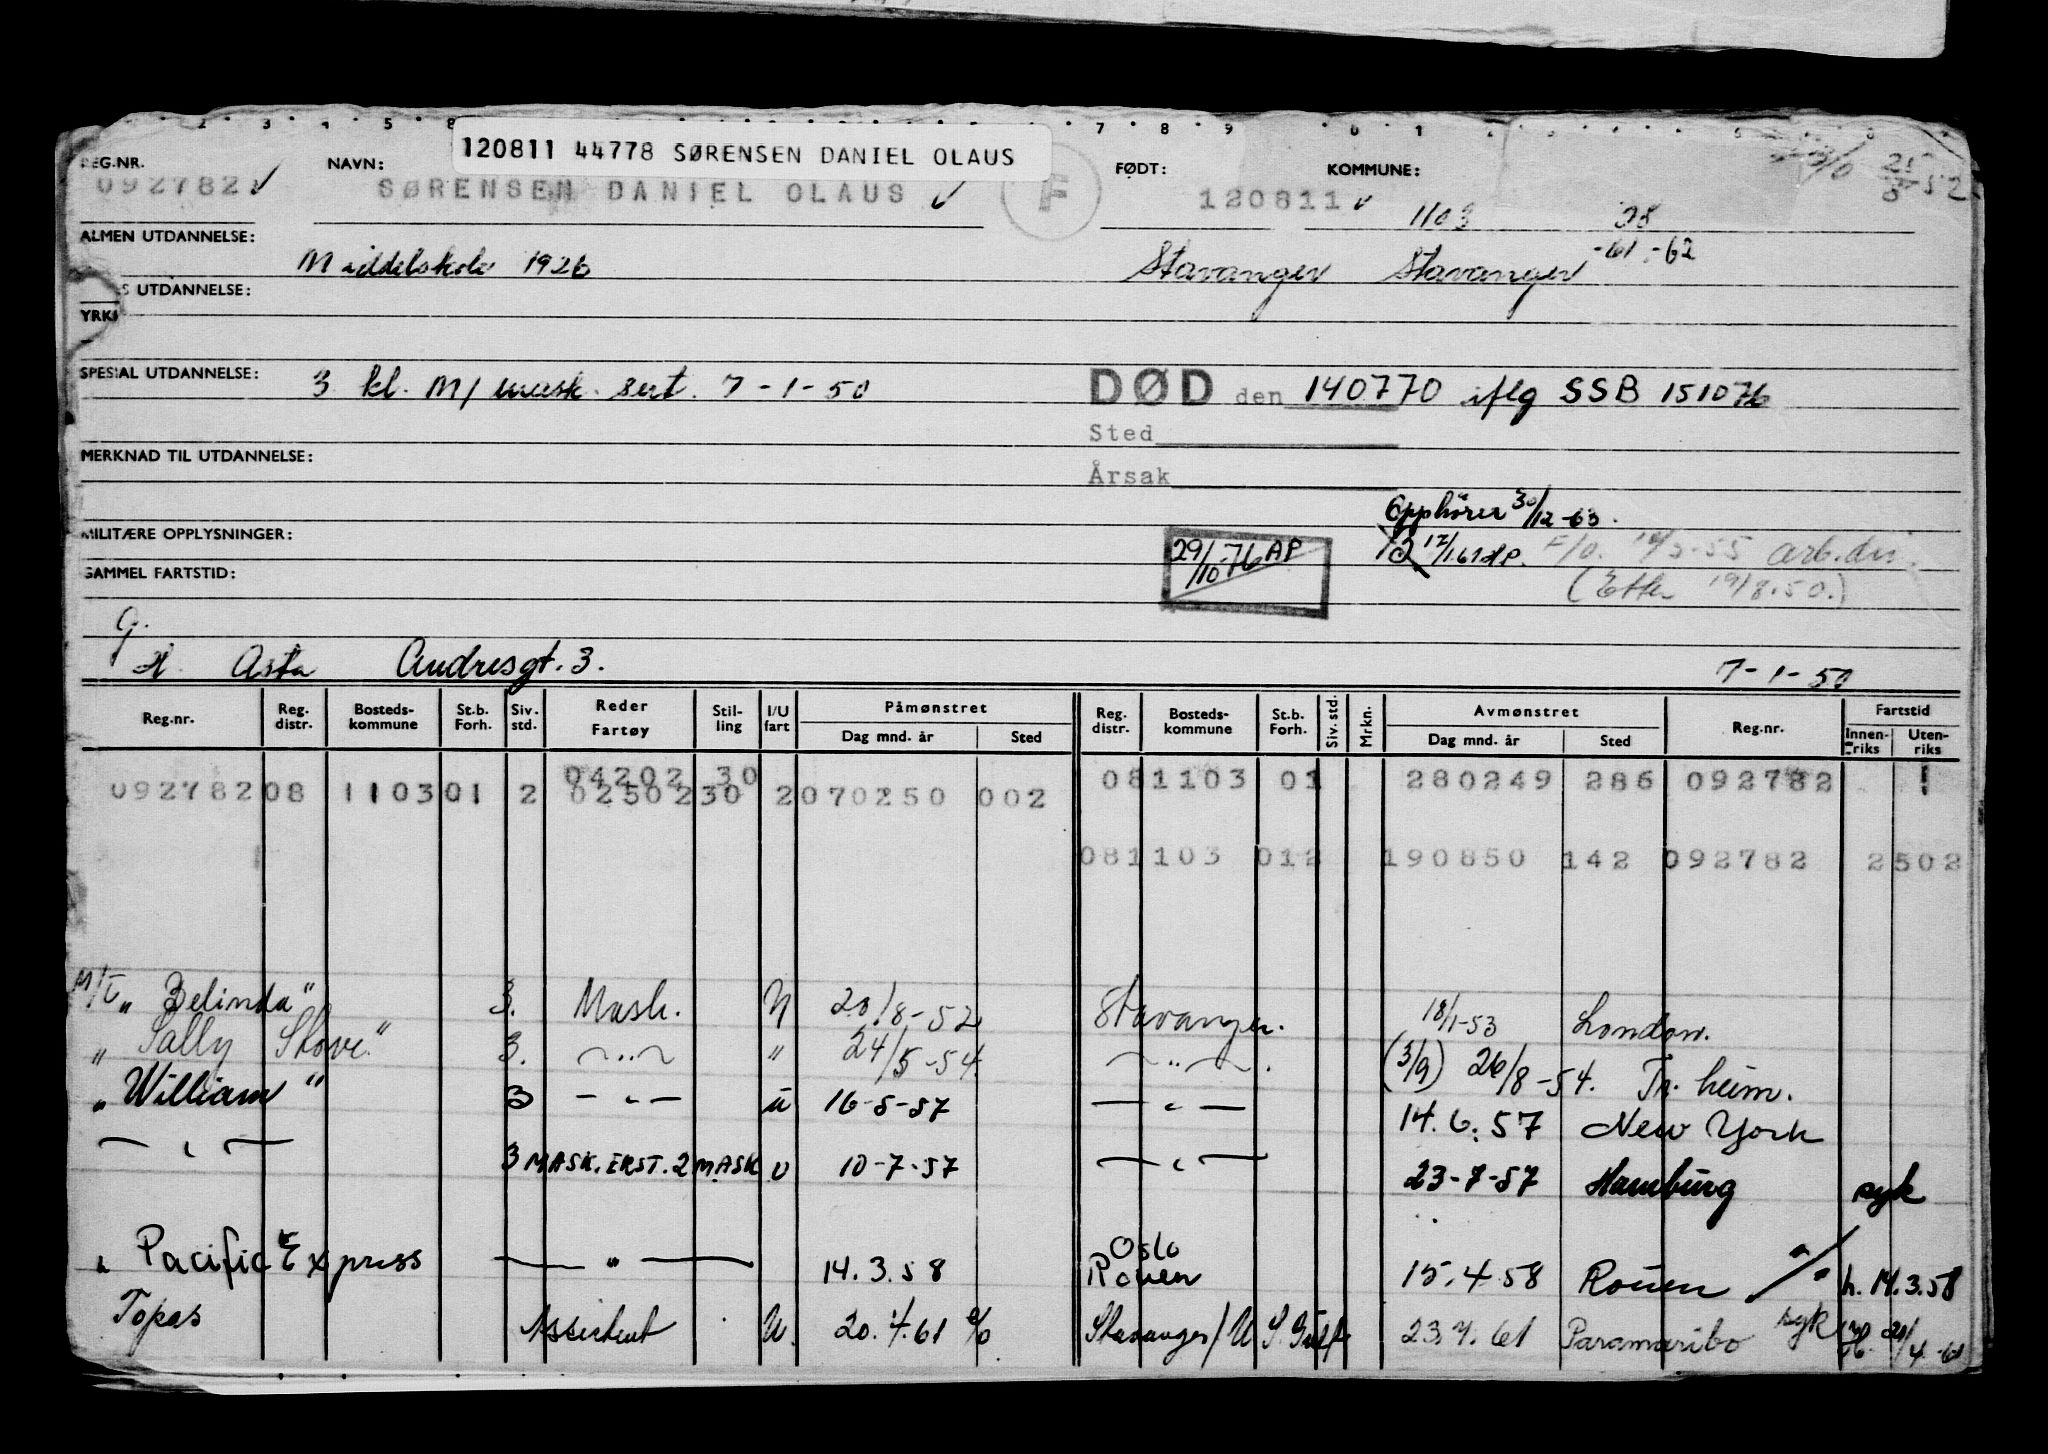 120811 44778 SØRENSEN DANIEL OLAUS
REG.NR. NAVN: FØDT: KOMMUNE:
092782 SØRENSEN DANIEL OLAUS F 120811 1103
ALMEN UTDANNELSE: Middelskole 1926 Stavanger Stavanger -61 -62
UTDANNELSE:
YRKE
SPESIAL UTDANNELSE: 3 kl. M/ mask. sert. 7-1-50 DØD den 140770 iflg SSB 151076
Sted
MERKNAD TIL UTDANNELSE:
Årsak
Opphører 30/12-63.
MILITÆRE OPPLYSNINGER: 29/10-76 AP 12/1.61 AP. F/O.
GAMMEL FARTSTID: (Etter 19/8.50.)
G.
H. Asta Andresgt. 3. 7-1-50
Reg.nr. Reg. distr. Bosteds-kommune St.b. Forh. Siv. std. Reder Fartøy Stil-ling I/U fart Påmønstret Dag mnd. år Sted Reg. distr. Bosteds-kommune St.b. Forh. Siv. std. Mrkn. Avmønstret Dag mnd. år Sted Reg.nr. Fartstid Innen-riks Uten-riks
04202 30 081103 01 280249 286 092782 1
092782 08 1103 01 2 02502 30 2 070250 002
081103 012 190850 142 092782 2502
M/T „Belinda" 3. Mask. U 20/8-52 Stavanger. 18/1-53 London.
„ Sally Stove" 3. — " — " 24/5-54. — " — . (3/9) 26/8-54. Tr.heim.
„ William" 3 — " — u 16-5-57 — " — 14.6.57 New York
— " — 3 MASK. ERST. 2 MASK U 10-7-57 — " — 23-7-57 Hamburg syk
„ Pacific Express — " — 14.3.58 Oslo Rouen 15.4.58 Rouen h. 14.3.58
Topas Assistent U. 20.4.61 Stavanger/U 23.4.61 Paramaribo syk